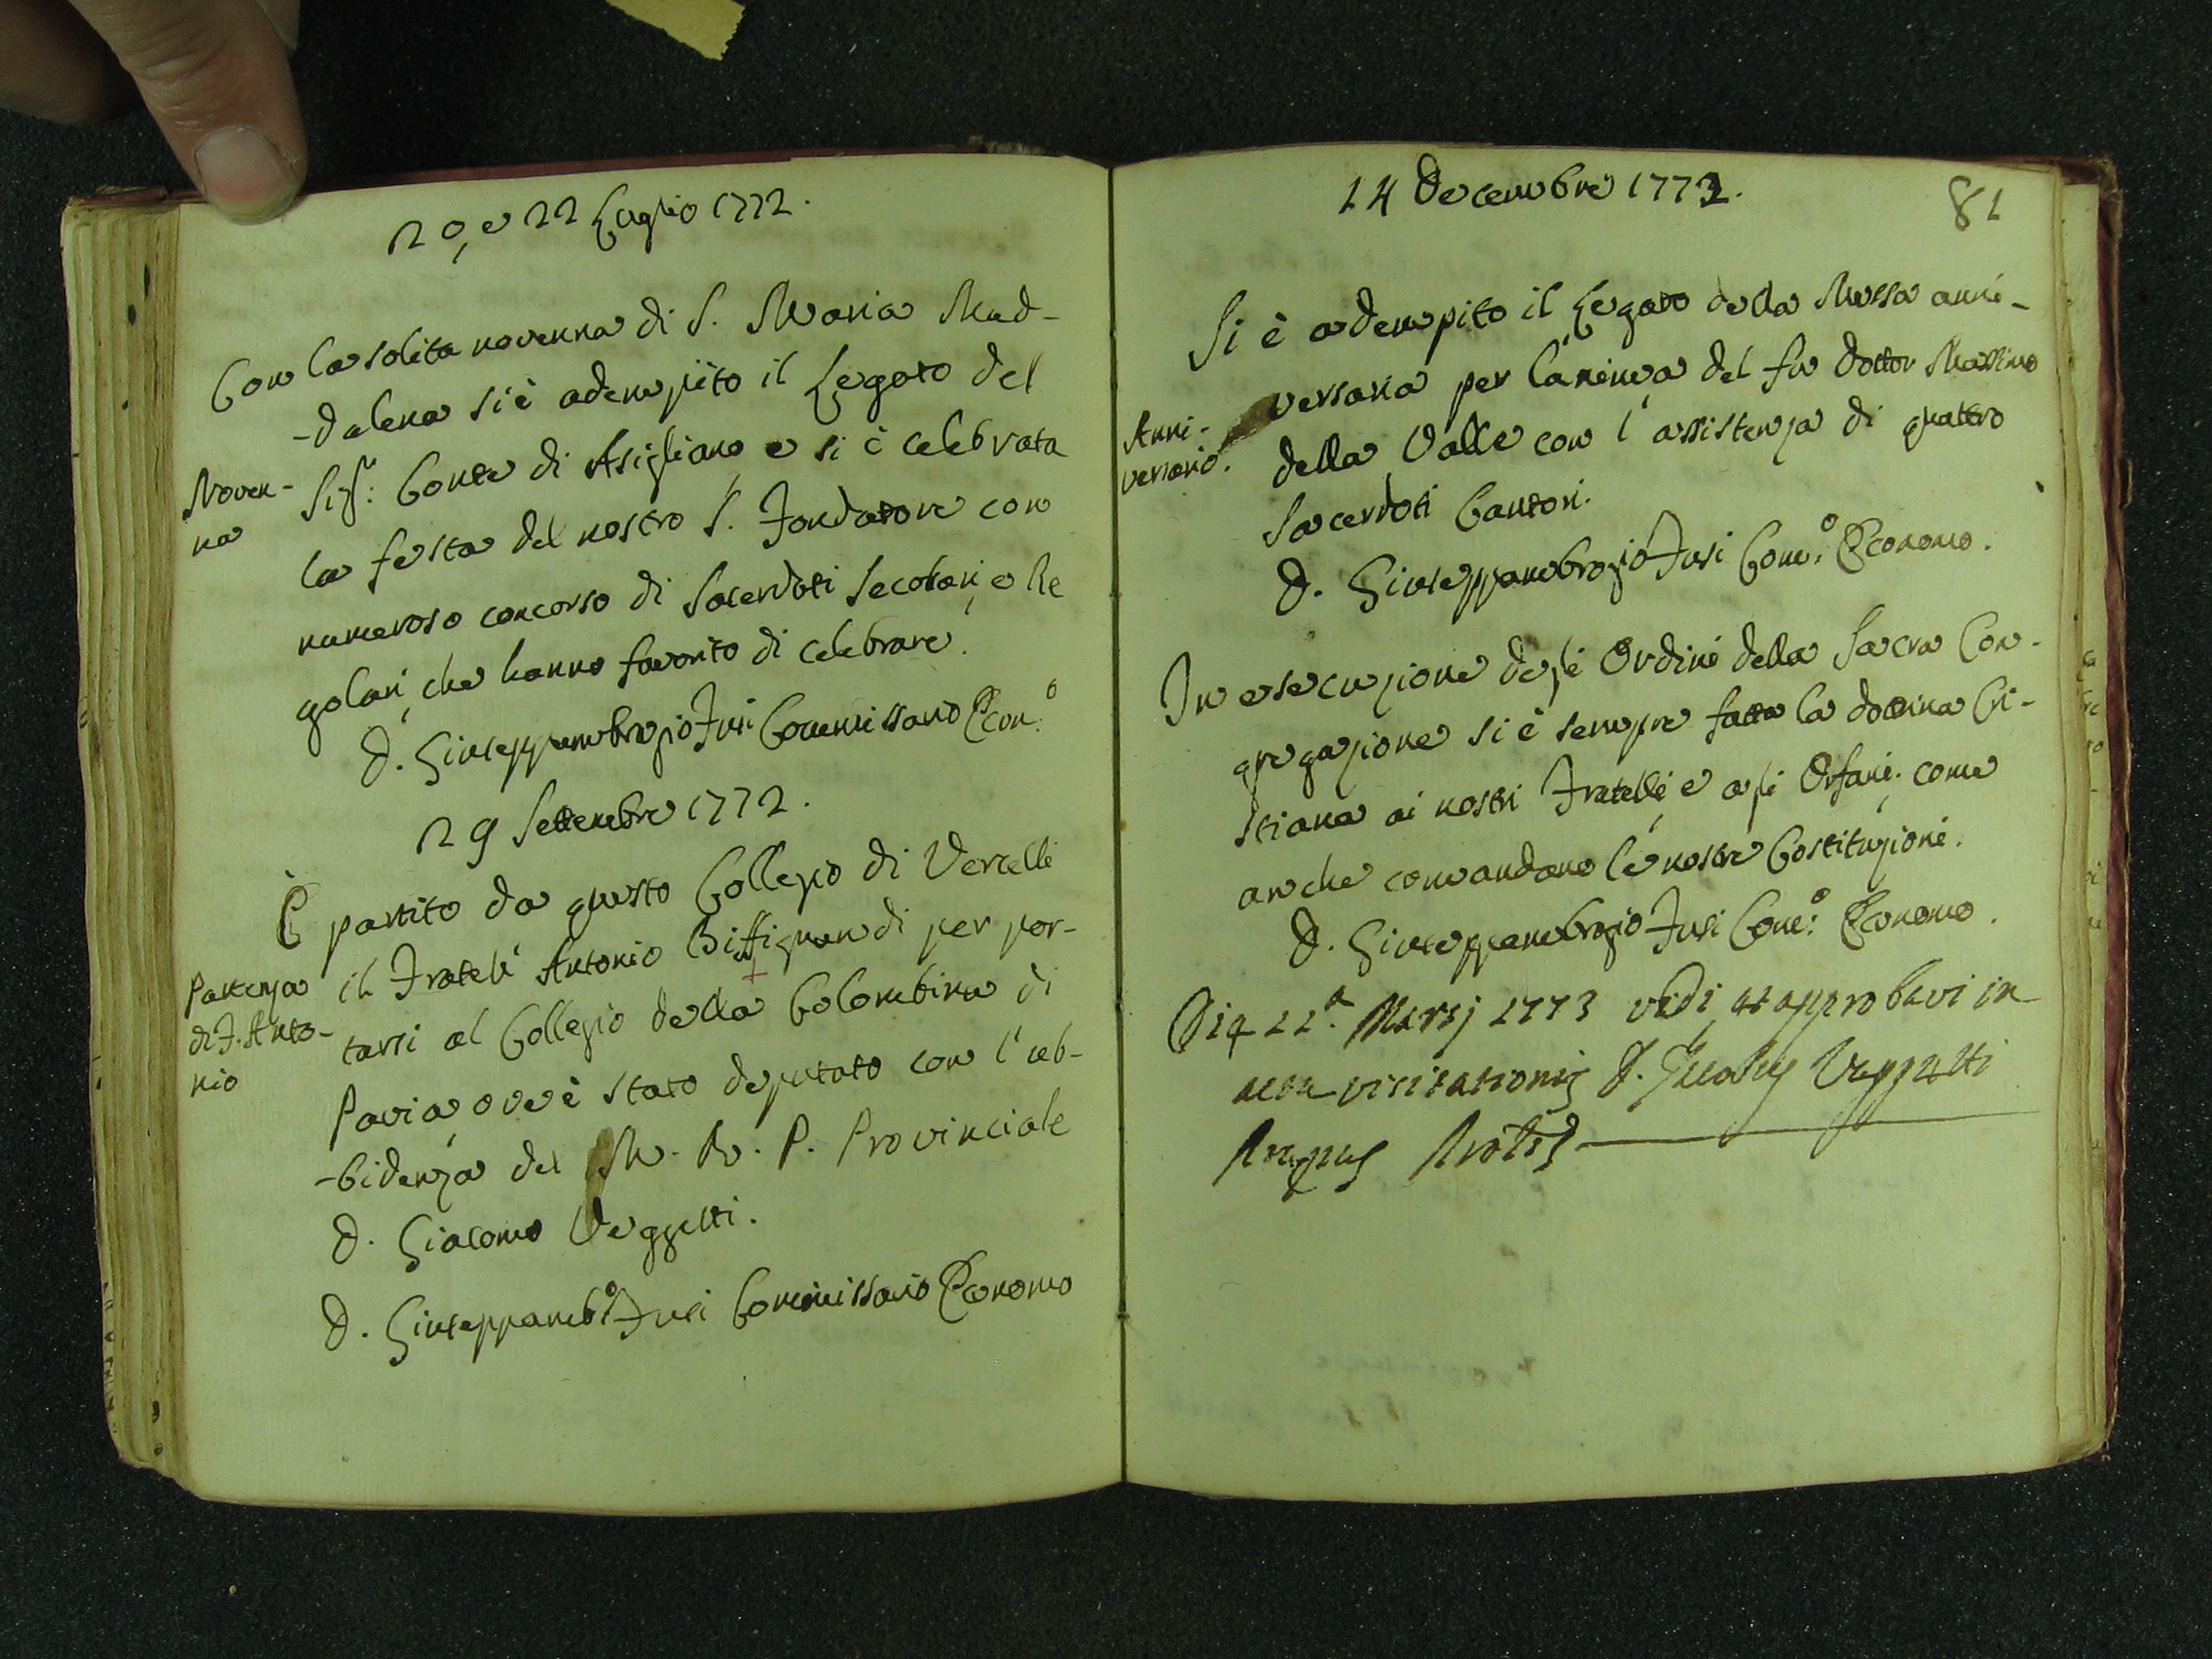 20, e 22 Luglio 1772.
Con la solita novenna di S. Maria Mad-
-dalena si è adempito il Legato del
Noven-
na
Sigr: Conte di Asigliano, e si è celebrata
la festa del nostro S. Fondatore con
numeroso concorso di Sacerdoti Secolari, e Re
golari, che hanno favorito di celebrare.
D. Giuseppambrogio Fusi Commissario Econ:o
29 Settembre 1772.
È partito da questo Collegio di Vercelli
Partenza
di F. Anto-
nio
il Fratel' Antonio Biffignandi per por-
tarsi al Collegio della Colombina di
Pavia, ove è stato deputato con l'ub-
-bidenza del M. R. P. Provinciale
D. Giacomo Veggetti.
D. Giuseppamb:o Fusi Commissario Economo
14 Decembre 1772.
81
Si è adempito il Legato della Messa anni-
versaria per l'anima del fu Dottor Massimo
Anni-
versario.
della Valle con l'assistenza di quattro
Sacerdoti Cantori.
D. Giuseppambrogio Fusi Com:o Economo.
In esecuzione degli Ordini della Sacra Con-
gregazione si è sempre fatta la dottrina Cri-
stiana ai nostri Fratelli, e agli Orfani, come
anche comandano le nostre Costituzioni.
D. Giuseppambrogio Fusi Com:o Economo.
Die 22.a Marzj 1773 vidi, et approbavi in
actu visitationis D. Jacobus Veggetti
Prepus Provlis